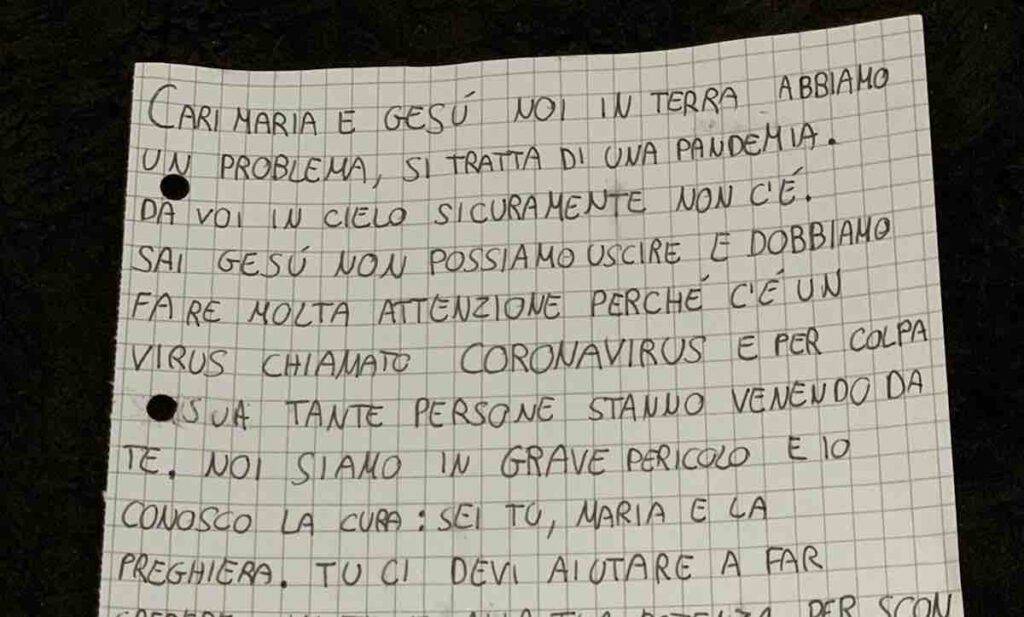 CARI MARIA E GESÚ NOI IN TERRA ABBIAMO
UN PROBLEMA, SI TRATTA DI UNA PANDEMIA.
DA VOI IN CIELO SICURAMENTE NON C'É.
SAI GESÚ NON POSSIAMO USCIRE E DOBBIAMO
FARE MOLTA ATTENZIONE PERCHÉ C'É UN
VIRUS CHIAMATO CORONAVIRUS E PER COLPA
SUA TANTE PERSONE STANNO VENENDO DA
TE. NOI SIAMO IN GRAVE PERICOLO E IO
CONOSCO LA CURA: SEI TU, MARIA E LA
PREGHIERA. TU CI DEVI AIUTARE A FAR
PER SCON